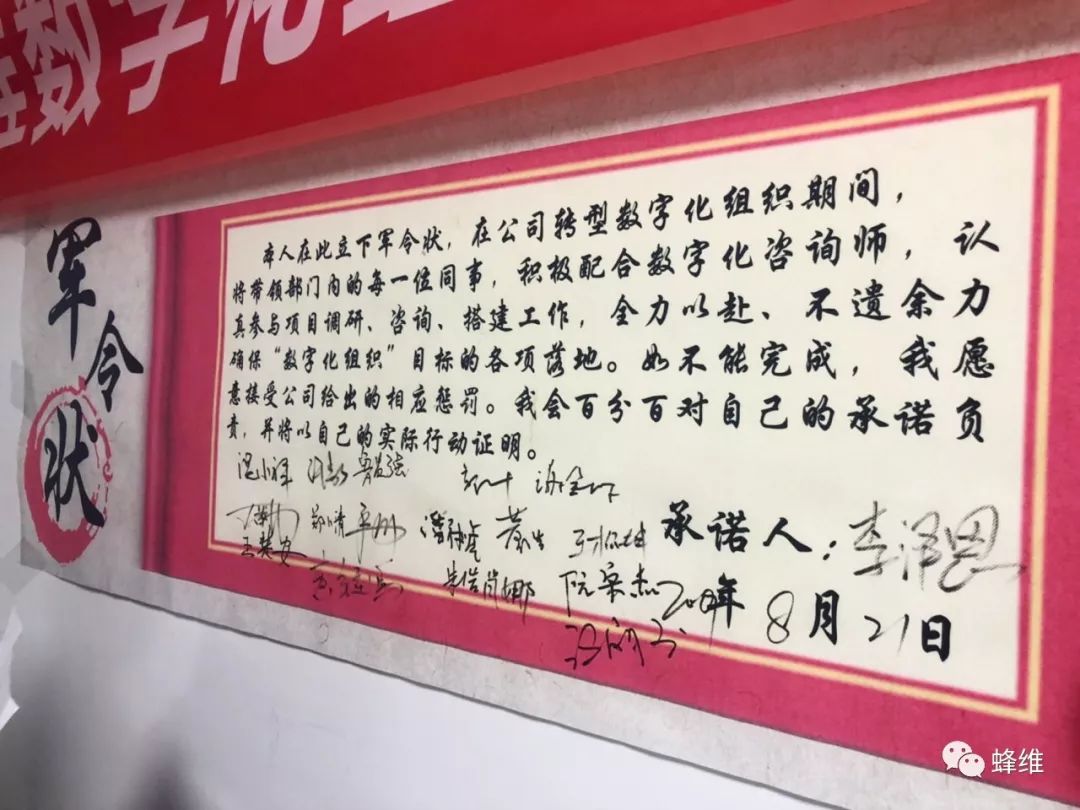 数字化
军令状
本人在此立下军令状，在公司转型数字化组织期间，
将带领部门内的每一位同事，积极配合数字化咨询师，认
真参与项目调研、咨询、搭建工作，全力以赴、不遗余力
确保“数字化组织”目标的各项落地。如不能完成，我愿
意接受公司给出的相应惩罚。我会百分百对自己的承诺负
责，并将以自己的实际行动证明。
承诺人：李泽恩
年8月21日
蜂维